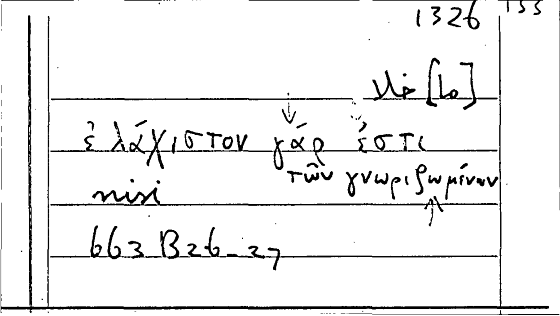 1326 133
[Lo]
ἐλάχιστον γάρ ἐστι
τῶν γνωριζωμένων
nisi
663 B26-27